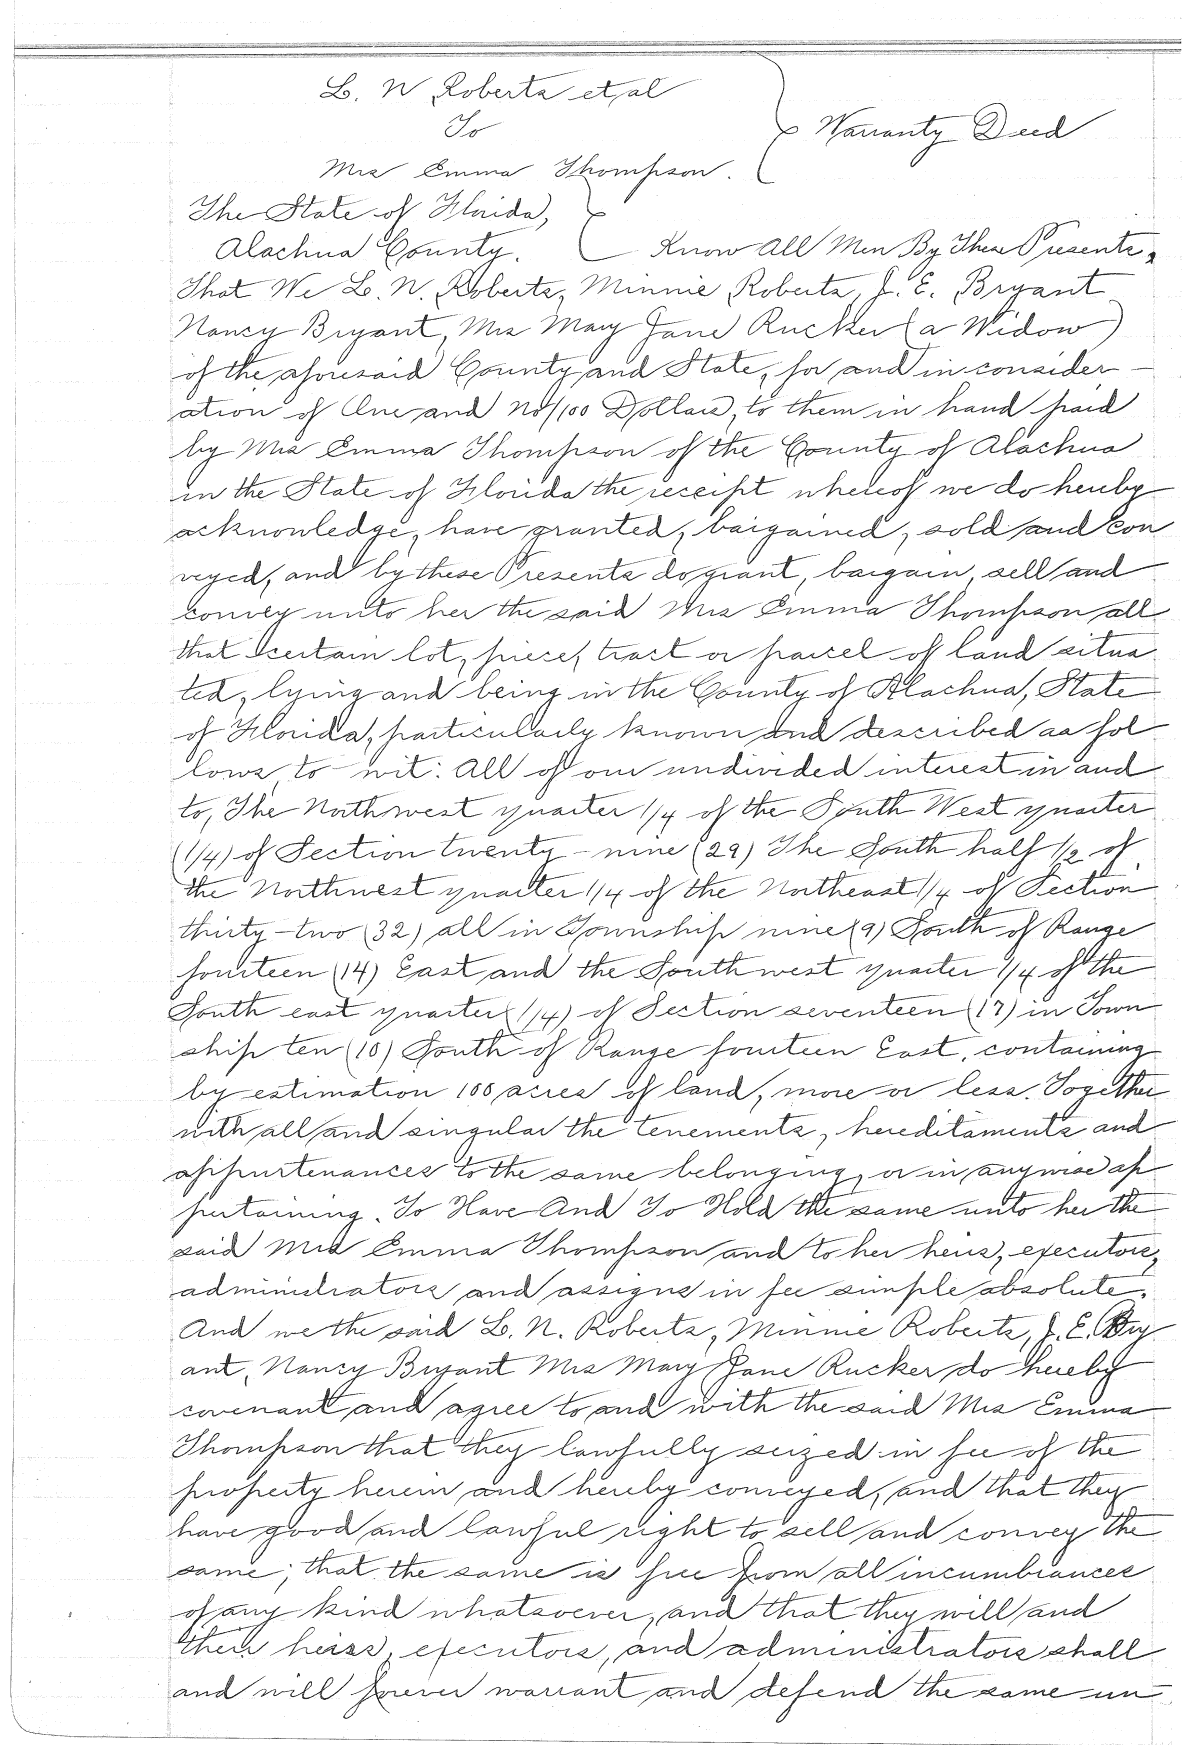 L. N. Roberts et al
To
Warranty Deed
Mrs Emma Thompson.
The State of Florida,
Alachua County. Know All Men By These Presents,
That We L. N. Roberts, Minnie Roberts, J. E. Bryant
Nancy Bryant, Mrs Mary Jane Rucker (a Widow)
of the aforesaid County and State, for and in consider-
ation of One and No/100 Dollars, to them in hand paid
by Mrs Emma Thompson of the County of Alachua
in the State of Florida the receipt whereof we do hereby
acknowledge, have granted, bargained, sold and con
veyed, and by these Presents do grant, bargain, sell and
convey unto her the said Mrs Emma Thompson all
that certain lot, piece, tract or parcel of land situa
ted, lying and being in the County of Alachua, State
of Florida, particularly known and described as fol
lows, to-wit: All of our undivided interest in and
to, The Northwest quarter 1/4 of the South West quarter
(1/4) of Section twenty-nine (29) The South half 1/2 of
the Northwest quarter 1/4 of the Northeast 1/4 of Section
thirty-two (32) all in Township nine (9) South of Range
fourteen (14) East and the Southwest quarter 1/4 of the
South east quarter (1/4) of Section seventeen (17) in Town
ship ten (10) South of Range fourteen East, containing
by estimation 100 acres of land, more or less. Together
with all and singular the tenements, hereditaments and
appurtenances to the same belonging, or in anywise ap
pertaining. To Have And To Hold the same unto her the
said Mrs Emma Thompson and to her heirs, executors,
administrators and assigns in fee simple absolute.
And we the said L. N. Roberts, Minnie Roberts, J. E. Bry
ant, Nancy Bryant Mrs Mary Jane Rucker do hereby
covenant and agree to and with the said Mrs Emma
Thompson that they lawfully seized in fee of the
property herein and hereby conveyed, and that they
have good and lawful right to sell and convey the
same; that the same is free from all incumbrances
of any kind whatsoever, and that they will and
their heirs, executors, and administrators shall
and will forever warrant and defend the same un